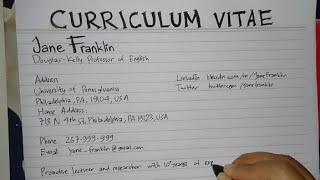 CURRICULUM VITAE
Jane Franklin
Douglas-Kelly Professor of English
Address:
University of Pennsylvania
Philadelphia, PA, 19104, USA
Home Address:
718 N 4th St, Philadelphia, PA 19023, USA
LinkedIn linkedin.com/in/JaneFranklin
Twitter twitter.com/JaneFranklin
Phone 267-999-999
Email Jane_franklin@gmail.com
Proactive lecturer and researcher with 10 years of exp